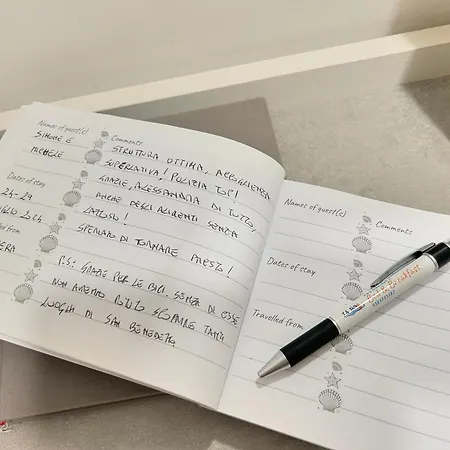 Names of guest(s)
Comments
SIMONE E
MICHELE
STRUTTURA OTTIMA, ACCOGLIENZA
SUPERLATIVA! PULIZIA TOP!
GRAZIE, ALESSANDRA DI TUTTO,
ANCHE DEGLI ALIMENTI SENZA
LATTOSIO!
SPERIAMO DI TORNARE PRESTO!
P.S: GRAZIE PER LE BICI SENZA DI ESSE
NON AVREMMO POTUTO SCOPRIRE TANTI
LUOGHI DI SAN BENEDETTO
Dates of stay
24-29
Names of guest(s)
Comments
Dates of stay
Travelled from
Bed & Breakfast